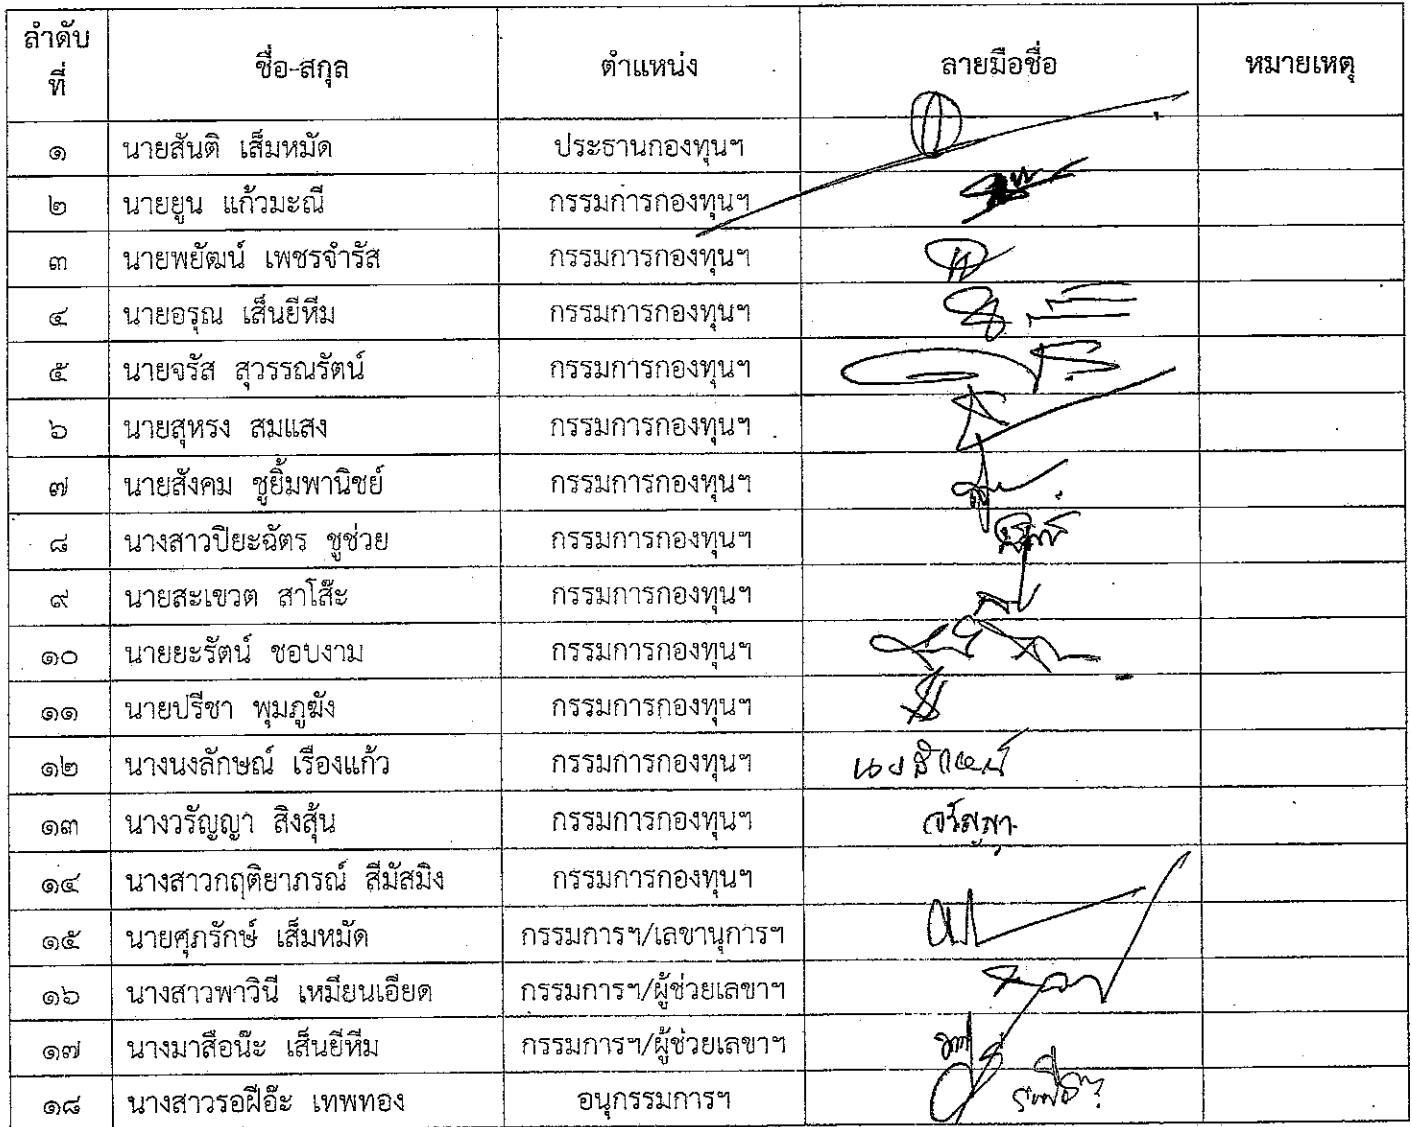 ลำดับที่ ชื่อ-สกุล ตำแหน่ง ลายมือชื่อ หมายเหตุ
๑ นายสันติ เส็มหมัด ประธานกองทุนฯ
๒ นายยูน แก้วมะณี กรรมการกองทุนฯ
๓ นายพยัฒน์ เพชรจำรัส กรรมการกองทุนฯ
๔ นายอรุณ เส็นยีหีม กรรมการกองทุนฯ
๕ นายจรัส สุวรรณรัตน์ กรรมการกองทุนฯ
๖ นายสุหรง สมแสง กรรมการกองทุนฯ
๗ นายสังคม ชูยิ้มพานิชย์ กรรมการกองทุนฯ
๘ นางสาวปิยะฉัตร ชูช่วย กรรมการกองทุนฯ
๙ นายสะเขวต สาโส๊ะ กรรมการกองทุนฯ
๑๐ นายยะรัตน์ ชอบงาม กรรมการกองทุนฯ
๑๑ นายปรีชา พุมภูฆัง กรรมการกองทุนฯ
๑๒ นางนงลักษณ์ เรืองแก้ว กรรมการกองทุนฯ นงลักษณ์
๑๓ นางวรัญญา สิงสุ้น กรรมการกองทุนฯ วรัญญา
๑๔ นางสาวกฤติยาภรณ์ สีมัสมิง กรรมการกองทุนฯ
๑๕ นายศุภรักษ์ เส็มหมัด กรรมการฯ/เลขานุการฯ
๑๖ นางสาวพาวินี เหมียนเอียด กรรมการฯ/ผู้ช่วยเลขาฯ
๑๗ นางมาสือน๊ะ เส็นยีหีม กรรมการฯ/ผู้ช่วยเลขาฯ
๑๘ นางสาวรอฝีอ๊ะ เทพทอง อนุกรรมการฯ